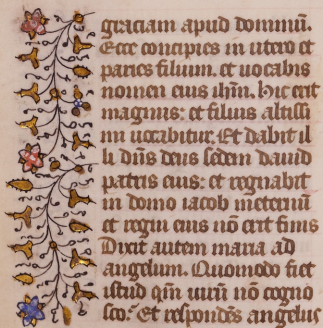 graciam apud dominū.
Ecce concipies in utero et
paries filium. et vocabis
nomen eius ihm̄. hic erit
magnus: et filius altissi
mi vocabitur. Et dabit il
li dn̄s deus sedem david
patris eius: et regnabit
in domo iacob meternū
et regni eius nō erit finis
Dixit autem maria ad
angelum. Quomodo fiet
istud qm̄ virū nō cogno
sco. Et respondēs angelus